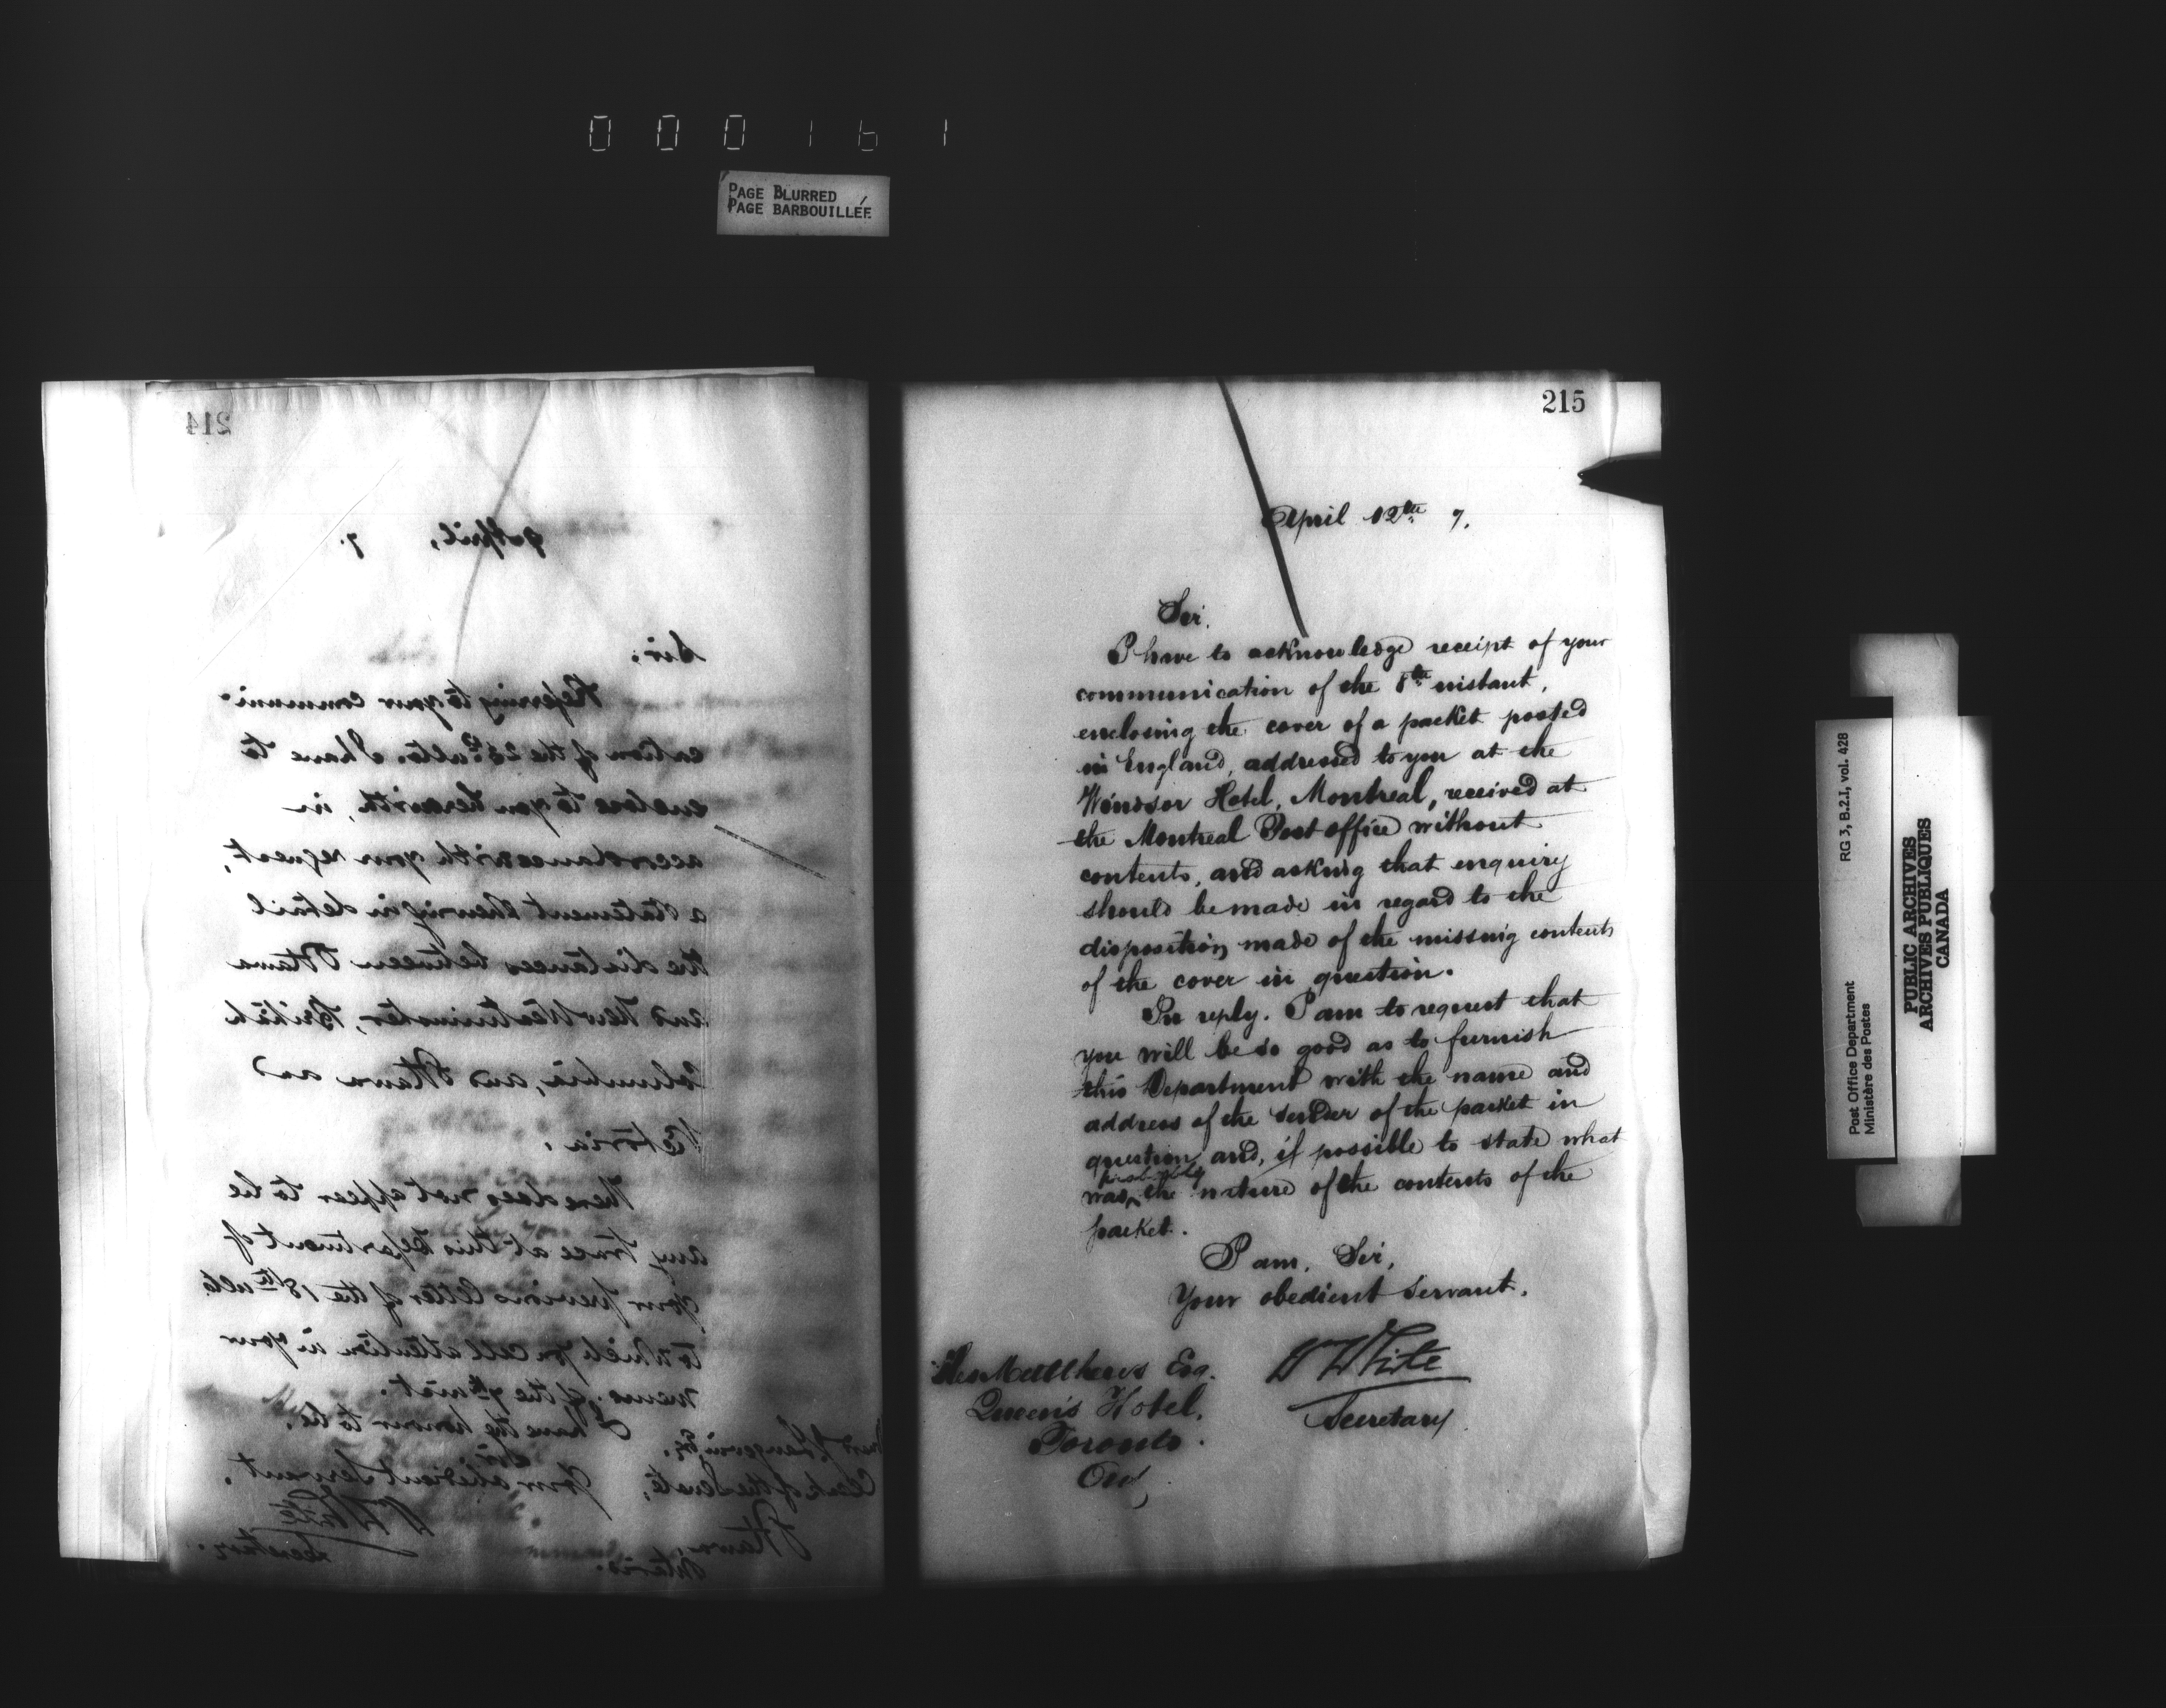 000161
PAGE BLURRED
PAGE BARBOUILLÉE
214
9 April, 7.
Sir.
Referring to your communi-
cation of the 23rd ulto. I have to
enclose to you herewith, in
accordance with your request,
a statement shewing in detail
the distances between Ottawa
and New Westminster, British
Columbia, and Ottawa and
Victoria.
There does not appear to be
any trace at this Department of
your previous letter of the 18th ulto.
to which you call attention in your
memo. of the 7th inst.
I have the honour to be,
Sir,
Your obedient Servant.
W White
Secretary.
Langevin Esq.
Clerk of the Senate,
Ottawa,
Ontario.
215
April 12th 7.
Sir.
I have to acknowledge receipt of your
communication of the 8th instant,
enclosing the cover of a packet posted
in England, addressed to you at the
Windsor Hotel, Montreal, received at
the Montreal Post office without
contents, and asking that enquiry
should be made in regard to the
disposition made of the missing contents
of the cover in question.
In reply. I am to request that
you will be so good as to furnish
this Department with the name and
address of the sender of the packet in
question, and, if possible to state what
was the nature of the contents of the
packet.
I am, Sir,
Your obedient servant.
W White
Secretary
Matthews Esq.
Queen's Hotel,
Toronto.
Ont,
Post Office Department
Ministère des Postes
RG 3, B.2.I, vol. 428
PUBLIC ARCHIVES
ARCHIVES PUBLIQUES
CANADA